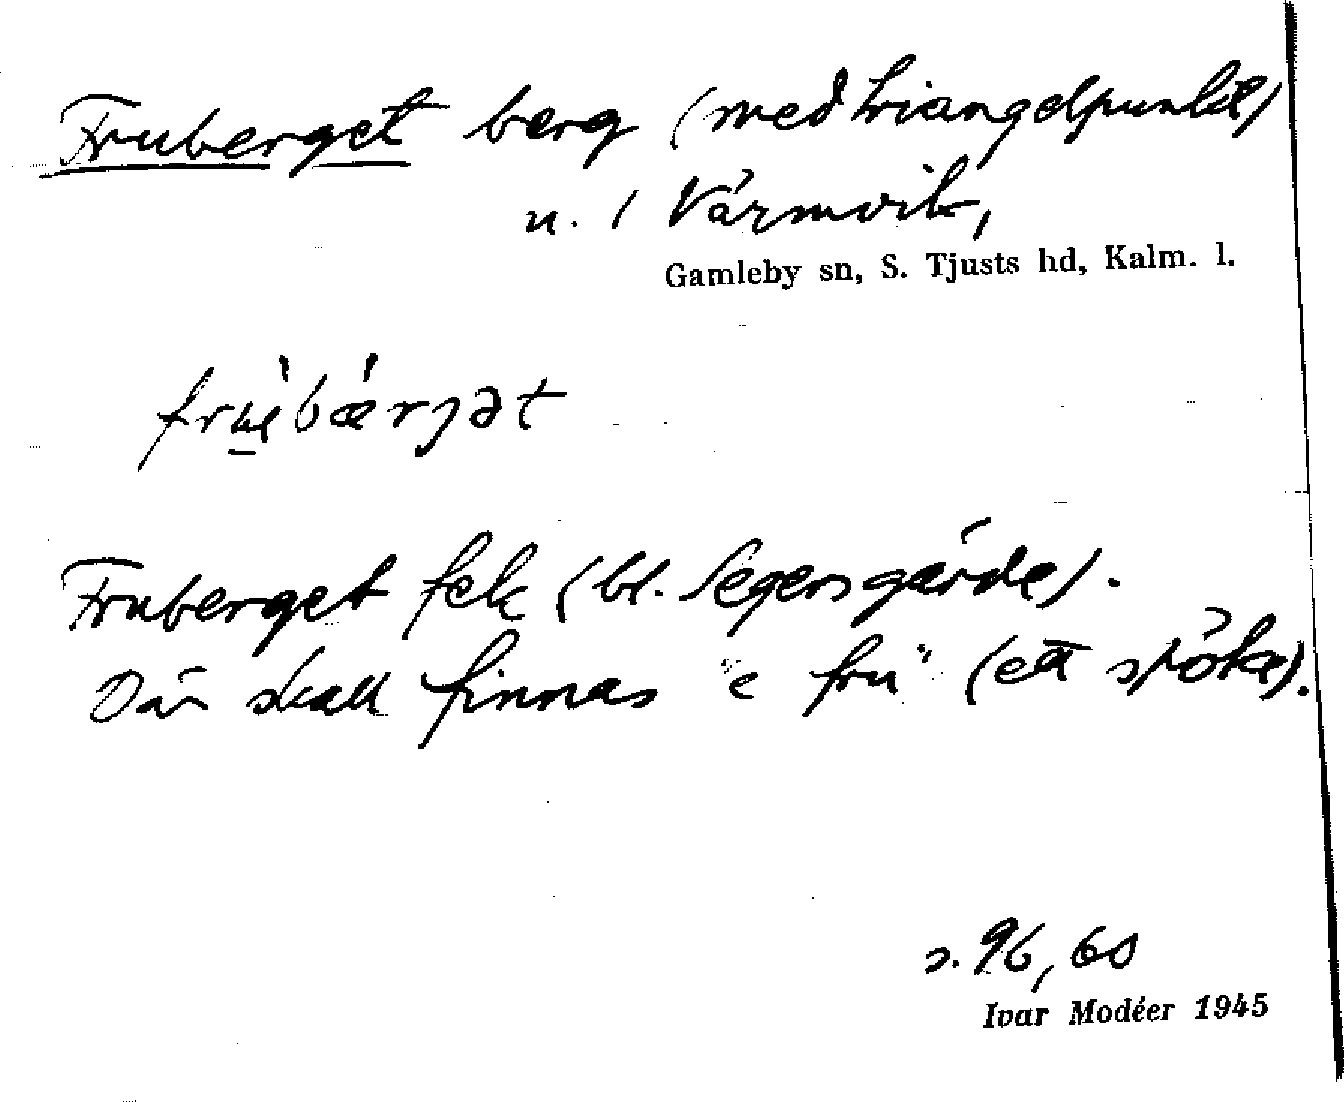 Fruberget berg (med triangelpunkt)
u. / Värmvik,
Gamleby sn, S. Tjusts hd, Kalm. l.
Fruberget fek (bl. Segersgärde).
Där skall finnas "e fru" (ett spöke).
s. 96, 60
Ivar Modéer 1945